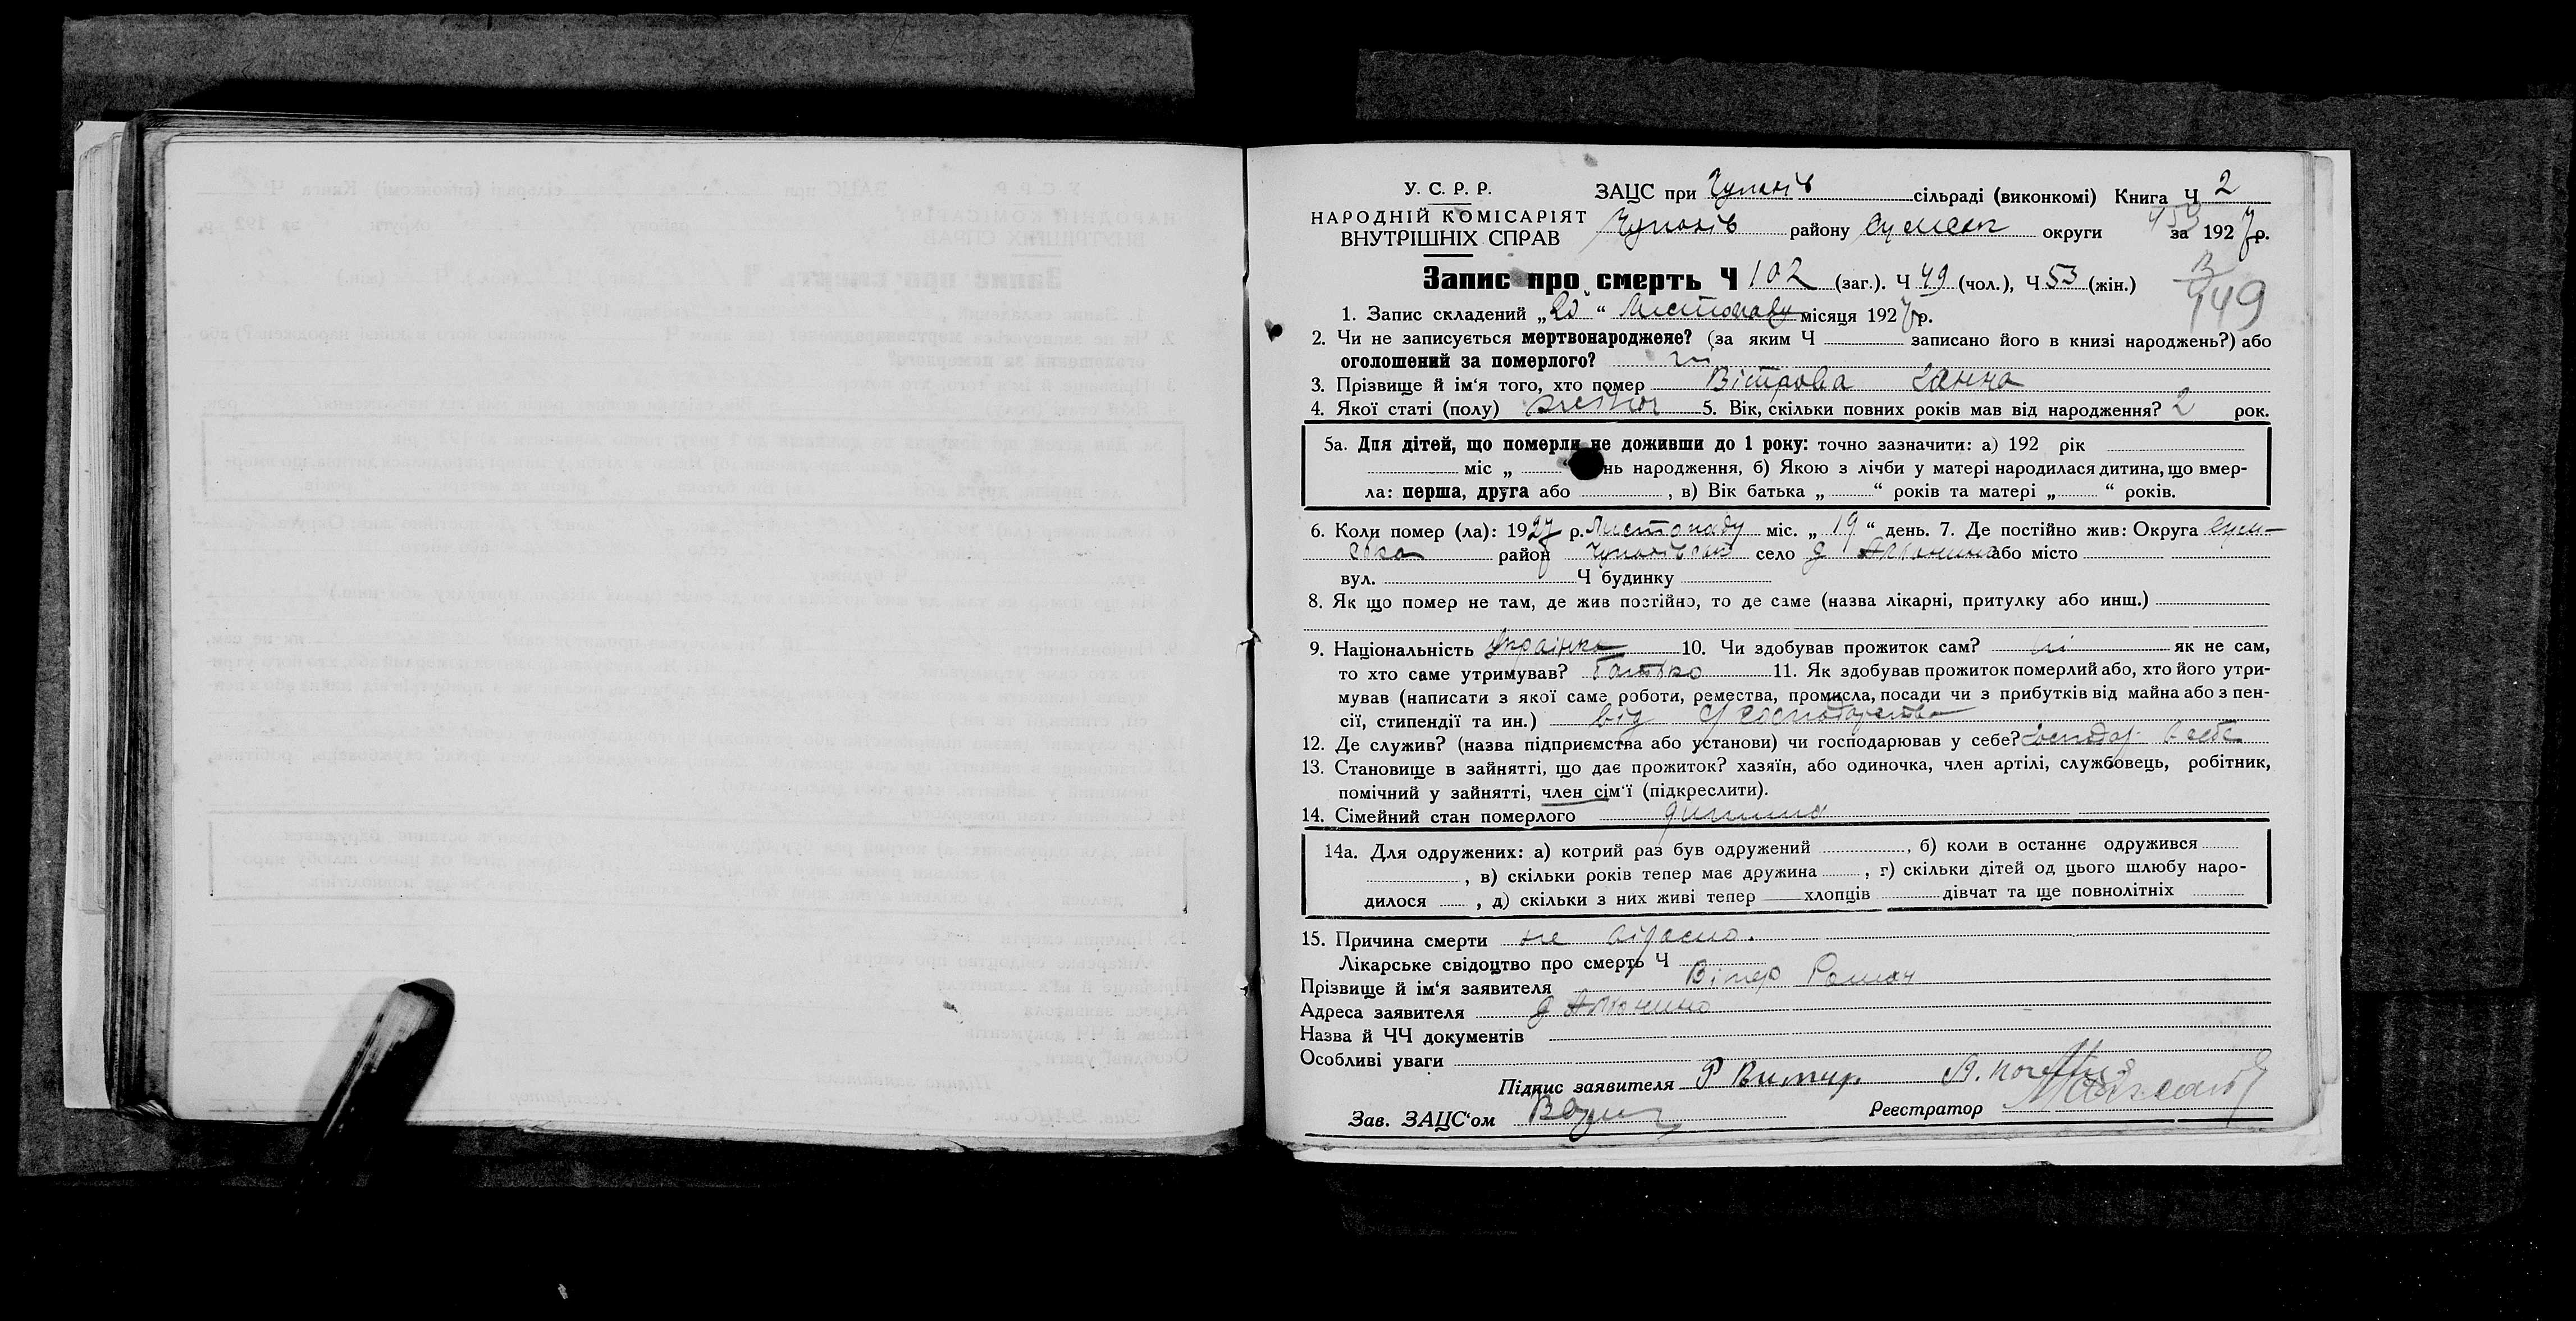 У. С. Р. Р.
НАРОДНІЙ КОМІСАРІЯТ
ВНУТРІШНІХ СПРАВ
ЗАЦС при Чупахів сільраді (виконкомі) Книга Ч 2
Чупахів району Сумськ округи за 1927 р.
449
Запис про смерть Ч 102 (заг.). Ч 49 (чол.), Ч 53 (жін.)
1. Запис складений „20“ Листопаду місяця 1927 р.
2. Чи не записується мертвонароджене? (за яким Ч записано його в книзі народжень?) або
оголошений за померлого? ні
3. Прізвище й ім‘я того, хто помер Вітрова Ганна
4. Якої статі (полу) жіноч 5. Вік, скільки повних років мав від народження? 2 рок.
5а. Для дітей, що померли не доживши до 1 року: точно зазначити: а) 192 рік
міс „ “ нь народження, б) Якою з лічби у матері народилася дитина, що вмер-
ла: перша, друга або , в) Вік батька „ “ років та матері „ “ років.
6. Коли помер (ла): 1927 р. Листопаду міс. „19“ день. 7. Де постійно жив: Округа Сум-
ська район Чупахівськ село д або місто
вул. Ч будинку
8. Як що помер не там, де жив постійно, то де саме (назва лікарні, притулку або инш.)
9. Національність Українка 10. Чи здобував прожиток сам? ні як не сам,
то хто саме утримував? батько 11. Як здобував прожиток померлий або, хто його утри-
мував (написати з якої саме роботи, ремества, промисла, посади чи з прибутків від майна або з пен-
сії, стипендії та ин.) від с/господарства
12. Де служив? (назва підприємства або установи) чи господарював у себе? господар в себе
13. Становище в зайнятті, що дає прожиток? хазяїн, або одиночка, член артілі, службовець, робітник,
помічний у зайнятті, член сім‘ї (підкреслити).
14. Сімейний стан померлого дитина
14а. Для одружених: а) котрий раз був одружений , б) коли в останнє одружився
, в) скільки років тепер має дружина , г) скільки дітей од цього шлюбу наро-
дилося , д) скільки з них живі тепер хлопців дівчат та ще повнолітніх
15. Причина смерти не відомо.
Лікарське свідоцтво про смерть Ч
Прізвище й ім‘я заявителя Вітер Роман
Адреса заявителя д
Назва й ЧЧ документів
Особливі уваги
Підпис заявителя Р
Зав. ЗАЦС‘ом Реєстратор